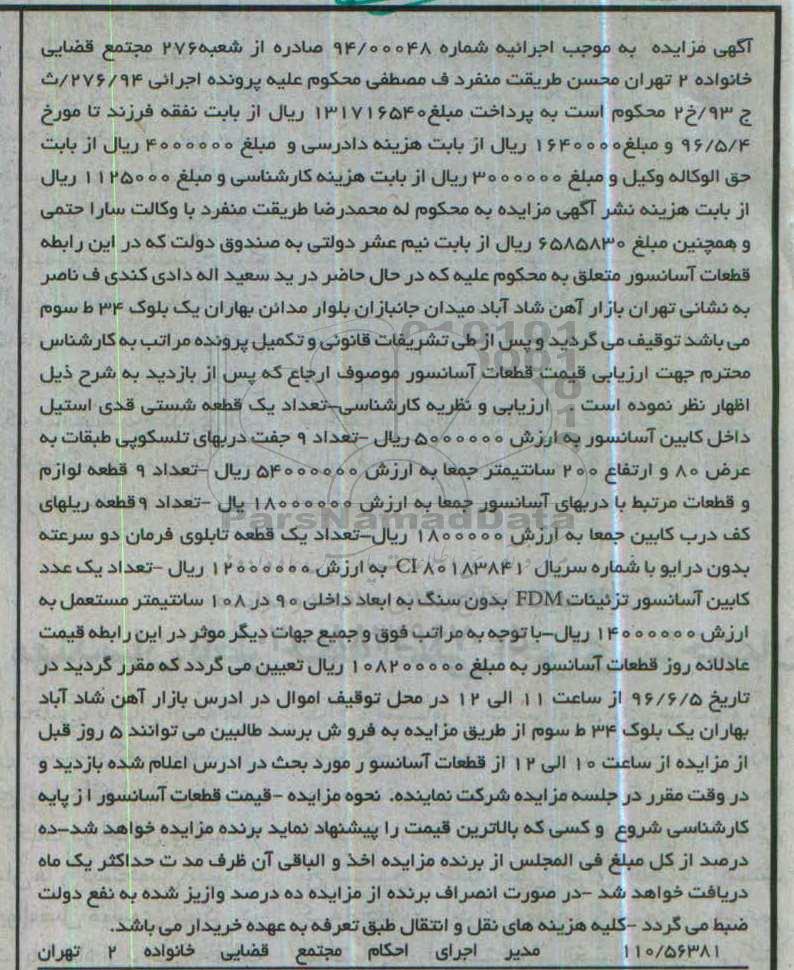 آگهی مزایده به موجب اجرائیه شماره ۹۴/۰۰۰۴۸ صادره از شعبه۲۷۶ مجتمع قضایی
خانواده ۲ تهران محسن طریقت منفرد ف مصطفی محکوم علیه پرونده اجرائی ۲۷۶/۹۴/ث
ج ۹۳/خ۲ محکوم است به پرداخت مبلغ۱۳۱۷۱۶۵۴۰ ریال از بابت نفقه فرزند تا مورخ
۹۶/۵/۴ و مبلغ۱۶۴۰۰۰۰ ریال از بابت هزینه دادرسی و مبلغ ۴۰۰۰۰۰۰ ریال از بابت
حق الوکاله وکیل و مبلغ ۳۰۰۰۰۰۰ ریال از بابت هزینه کارشناسی و مبلغ ۱۱۲۵۰۰۰ ریال
از بابت هزینه نشر آگهی مزایده به محکوم له محمدرضا طریقت منفرد با وکالت سارا حتمی
و همچنین مبلغ ۶۵۸۵۸۳۰ ریال از بابت نیم عشر دولتی به صندوق دولت که در این رابطه
قطعات آسانسور متعلق به محکوم علیه که در حال حاضر در ید سعید اله دادی کندی ف ناصر
به نشانی تهران بازار آهن شاد آباد میدان جانبازان بلوار مدائن بهاران یک بلوک ۳۴ ط سوم
می باشد توقیف می گردید و پس از طی تشریفات قانونی و تکمیل پرونده مراتب به کارشناس
محترم جهت ارزیابی قیمت قطعات آسانسور موصوف ارجاع که پس از بازدید به شرح ذیل
اظهار نظر نموده است . ارزیابی و نظریه کارشناسی–تعداد یک قطعه شستی قدی استیل
داخل کابین آسانسور به ارزش ۵۰۰۰۰۰۰ ریال –تعداد ۹ جفت دربهای تلسکوپی طبقات به
عرض ۸۰ و ارتفاع ۲۰۰ سانتیمتر جمعا به ارزش ۵۴۰۰۰۰۰۰ ریال –تعداد ۹ قطعه لوازم
و قطعات مرتبط با دربهای آسانسور جمعا به ارزش ۱۸۰۰۰۰۰۰ یال –تعداد ۹قطعه ریلهای
ParsNamadData
کف درب کابین جمعا به ارزش ۱۸۰۰۰۰۰ ریال–تعداد یک قطعه تابلوی فرمان دو سرعته
بدون درایو با شماره سریال CI ۸۰۱۸۳۸۴۱ به ارزش ۱۲۰۰۰۰۰۰ ریال –تعداد یک عدد
کابین آسانسور تزئینات FDM بدون سنگ به ابعاد داخلی ۹۰ در ۱۰۸ سانتیمتر مستعمل به
ارزش ۱۴۰۰۰۰۰۰ ریال–با توجه به مراتب فوق و جمیع جهات دیگر موثر در این رابطه قیمت
عادلانه روز قطعات آسانسور به مبلغ ۱۰۸۲۰۰۰۰۰ ریال تعیین می گردد که مقرر گردید در
تاریخ ۹۶/۶/۵ از ساعت ۱۱ الی ۱۲ در محل توقیف اموال در ادرس بازار آهن شاد آباد
بهاران یک بلوک ۳۴ ط سوم از طریق مزایده به فرو ش برسد طالبین می توانند ۵ روز قبل
از مزایده از ساعت ۱۰ الی ۱۲ از قطعات آسانسو ر مورد بحث در ادرس اعلام شده بازدید و
در وقت مقرر در جلسه مزایده شرکت نمایند. نحوه مزایده –قیمت قطعات آسانسور ا ز پایه
کارشناسی شروع و کسی که بالاترین قیمت را پیشنهاد نماید برنده مزایده خواهد شد–ده
درصد از کل مبلغ فی المجلس از برنده مزایده اخذ و الباقی آن ظرف مد ت حداکثر یک ماه
دریافت خواهد شد –در صورت انصراف برنده از مزایده ده درصد واریز شده به نفع دولت
ضبط می گردد –کلیه هزینه های نقل و انتقال طبق تعرفه به عهده خریدار می باشد.
۱۱۰/۵۶۳۸۱ مدیر اجرای احکام مجتمع قضایی خانواده ۲ تهران